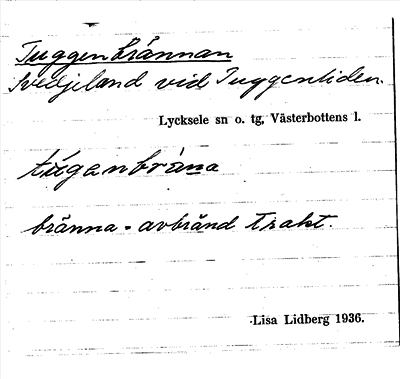 Tuggenbrännan
Svedjeland vid Tuggenliden.
Lycksele sn o. tg, Västerbottens l.
túganbrana
bränna = avbränd trakt.
Lisa Lidberg 1936.